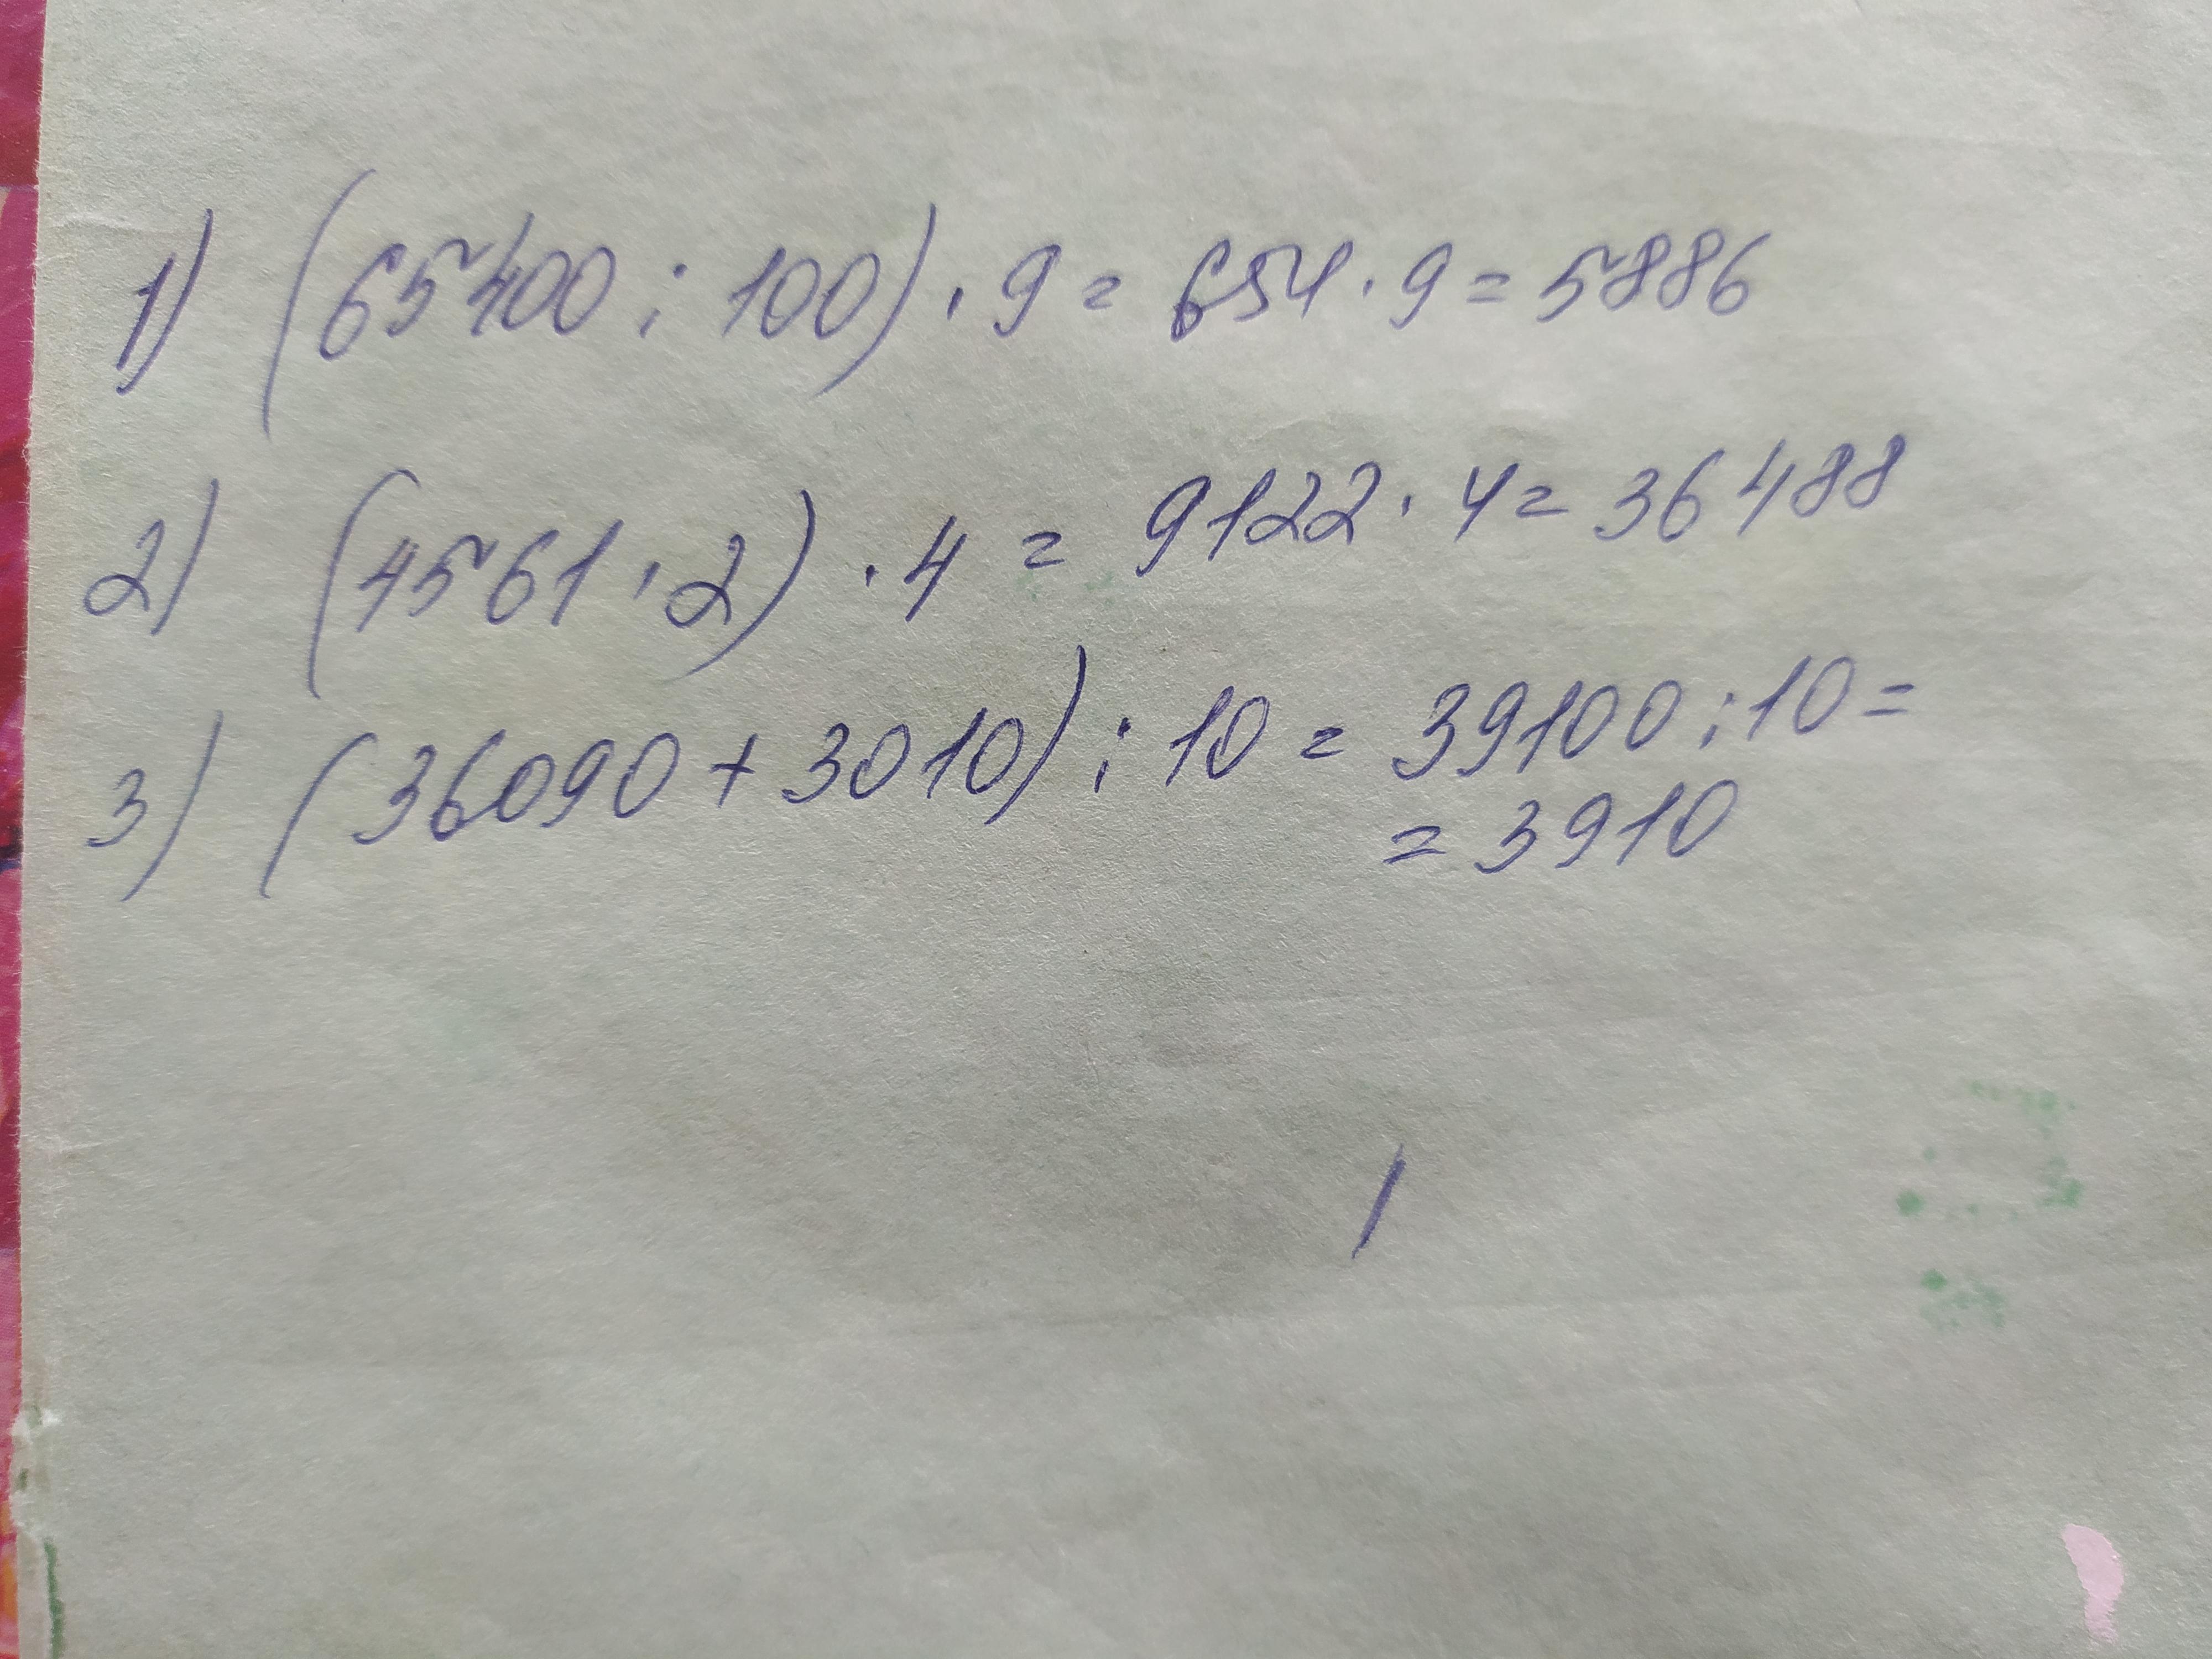 1) (65400 : 100) · 9 = 654 · 9 = 5886
2) (4561 · 2) · 4 = 9122 · 4 = 36488
3) (36090 + 3010) : 10 = 39100 : 10 =
= 3910